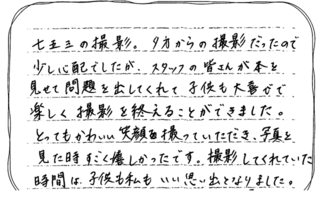 七五三の撮影。夕方からの撮影だったので
少し心配でしたが、スタッフの皆さんが本を
見せて問題を出してくれて子供も大喜びで
楽しく撮影を終えることができました。
とってもかわいい笑顔を撮っていただき、写真を
見た時すごく嬉しかったです。撮影してくれていた
時間は、子供も私もいい思い出となりました。